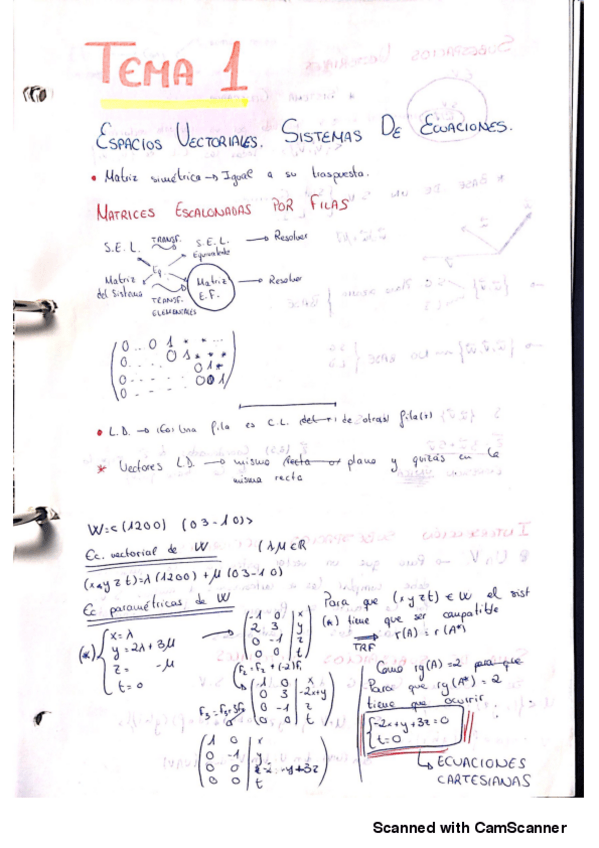 TEMA 1
ESPACIOS VECTORIALES. SISTEMAS DE ECUACIONES.
• Matriz simétrica → Igual a su traspuesta.
MATRICES ESCALONADAS POR FILAS
S.E.L. TRANSF. S.E.L. Equivalente → Resolver
Eq.
Matriz del Sistema TRANSF. ELEMENTALES Matriz E.F. → Resolver
0 . . 0 1 * * . . .
0 . . . . 0 1 * * *
0 . . . . . 0 1 *
0 . . . . . 0 0 1
0 . . . .
• L.D. → una fila es C.L. de otra(s) fila(s)
* Vectores L.D. → mismo plano y quizás en la
misma recta
W=<(1200) (03-10)>
Ec. vectorial de W (λ,μ∈R
(x,y z t)=λ(1200)+μ(03-10)
Ec paramétricas de W
(*) { x=λ
y=2λ+3μ
z= -μ
t=0
1 0 | x
2 3 | y
0 -1 | z
0 0 | t
F₂=F₂+(-2)F₁
1 0 | x
0 3 | -2x+y
0 -1 | z
0 0 | t
1 0 | x
0 -1
0 0
0 0 | t
Para que (x y z t) ∈ W el sist
(*) tiene que ser compatible
TRF r(A)=r(A*)
Como rg(A)=2 para que
Para que rg(A*)=2
tiene que ocurrir
{ -2x+y+3z=0
t=0
↳ ECUACIONES
CARTESIANAS
Scanned with CamScanner